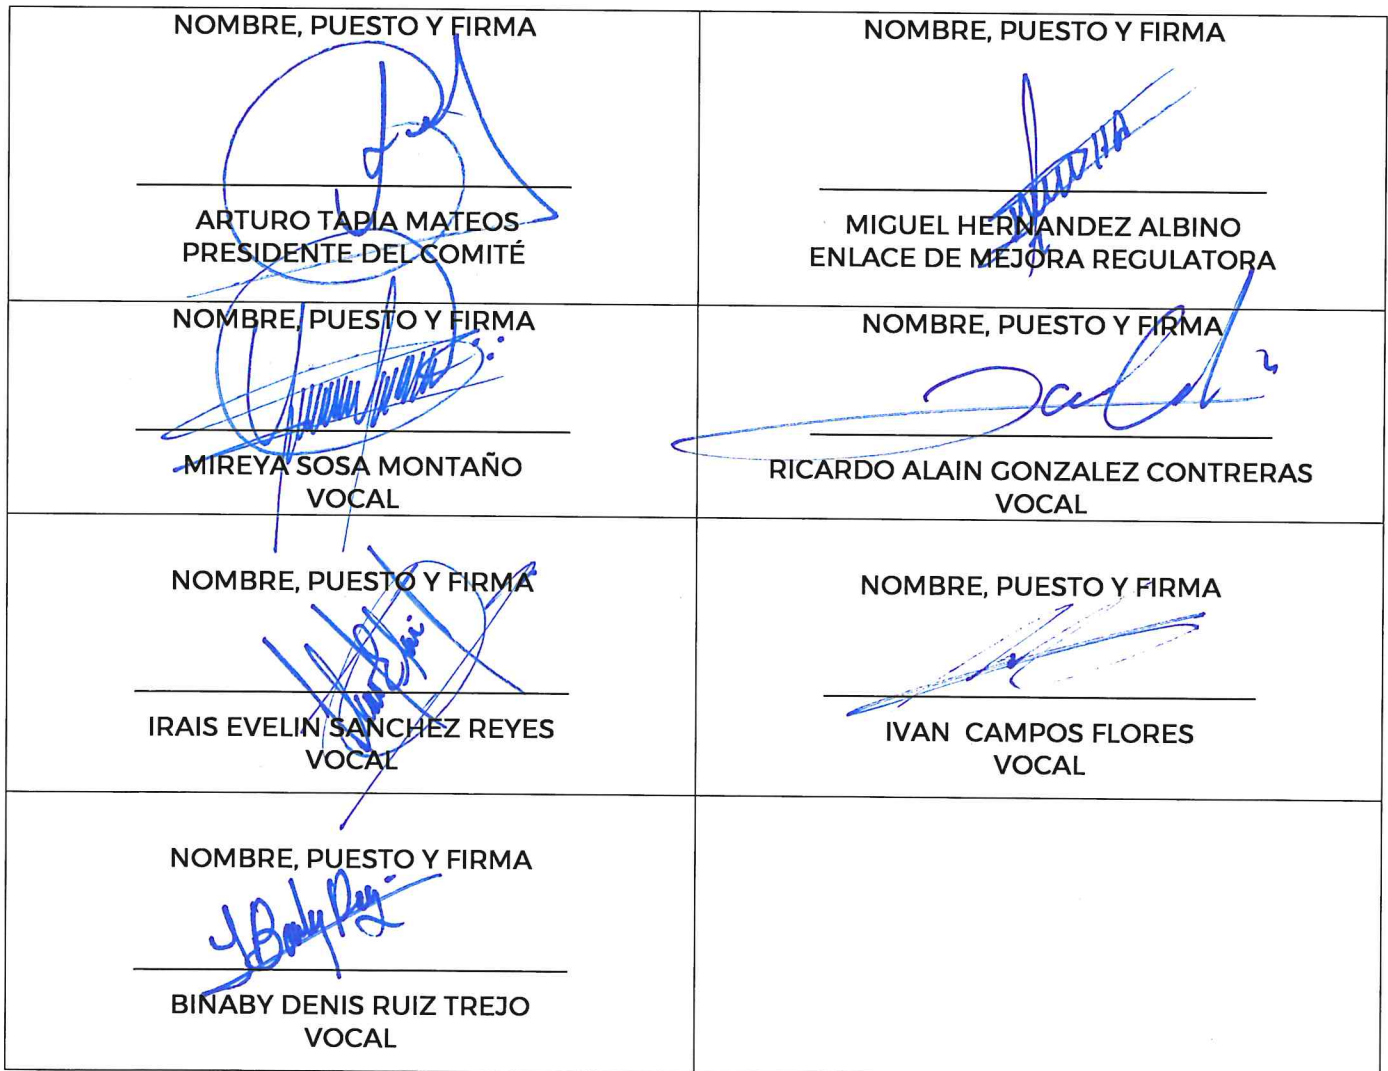 NOMBRE, PUESTO Y FIRMA
ARTURO TAPIA MATEOS
PRESIDENTE DEL COMITÉ
NOMBRE, PUESTO Y FIRMA
MIGUEL HERNANDEZ ALBINO
ENLACE DE MEJORA REGULATORA
NOMBRE, PUESTO Y FIRMA
MIREYA SOSA MONTAÑO
VOCAL
NOMBRE, PUESTO Y FIRMA
RICARDO ALAIN GONZALEZ CONTRERAS
VOCAL
NOMBRE, PUESTO Y FIRMA
IRAIS EVELIN SANCHEZ REYES
VOCAL
NOMBRE, PUESTO Y FIRMA
IVAN CAMPOS FLORES
VOCAL
NOMBRE, PUESTO Y FIRMA
BINABY DENIS RUIZ TREJO
VOCAL